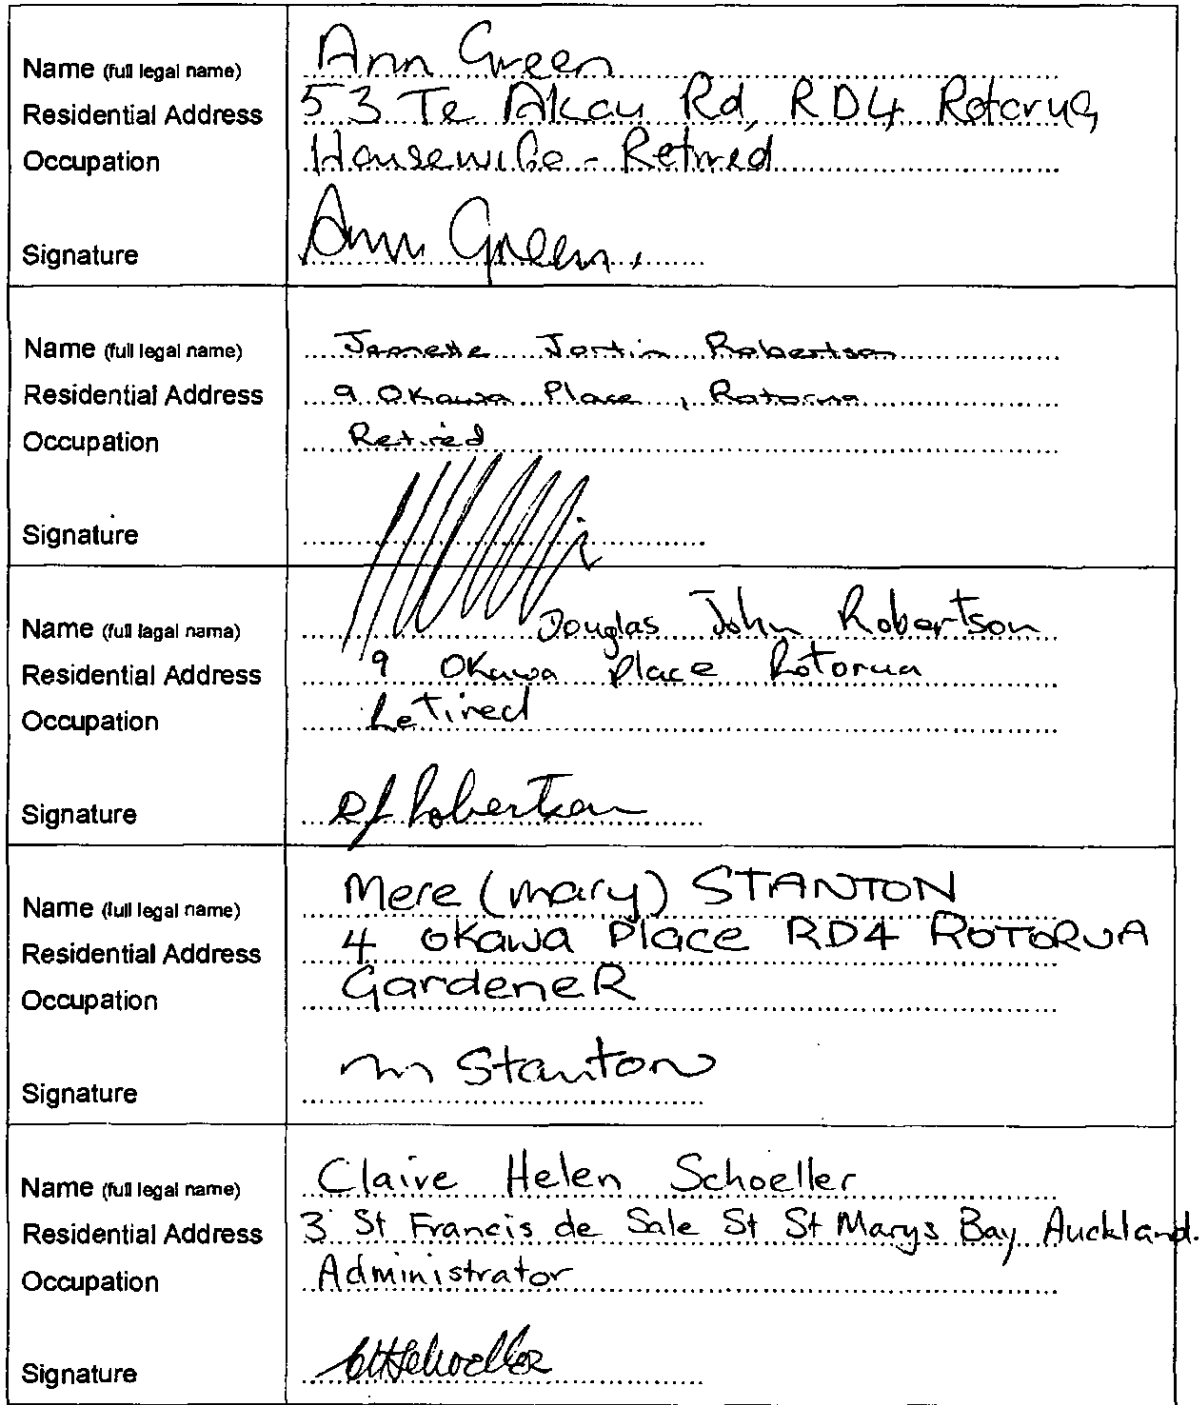 Name (full legal name) Ann Green
Residential Address 53 Te Akau Rd, RD4 Rotorua
Occupation Housewife - Retired
Signature Ann Green.
Name (full legal name) Jeanette Jortin Robertson
Residential Address 9 Okawa Place, Rotorua
Occupation Retired
Signature
Name (full lagal nama) Douglas John Robertson
Residential Address 9 Okawa Place Rotorua
Occupation Retired
Signature DJ Robertson
Name (full legal name) Mere (mary) STANTON
Residential Address 4 Okawa Place RD4 ROTORUA
Occupation GardeneR
Signature m Stanton
Name (full legal name) Claire Helen Schoeller
Residential Address 3 St Francis de Sale St St Marys Bay Auckland.
Occupation Administrator
Signature CHSchoeller